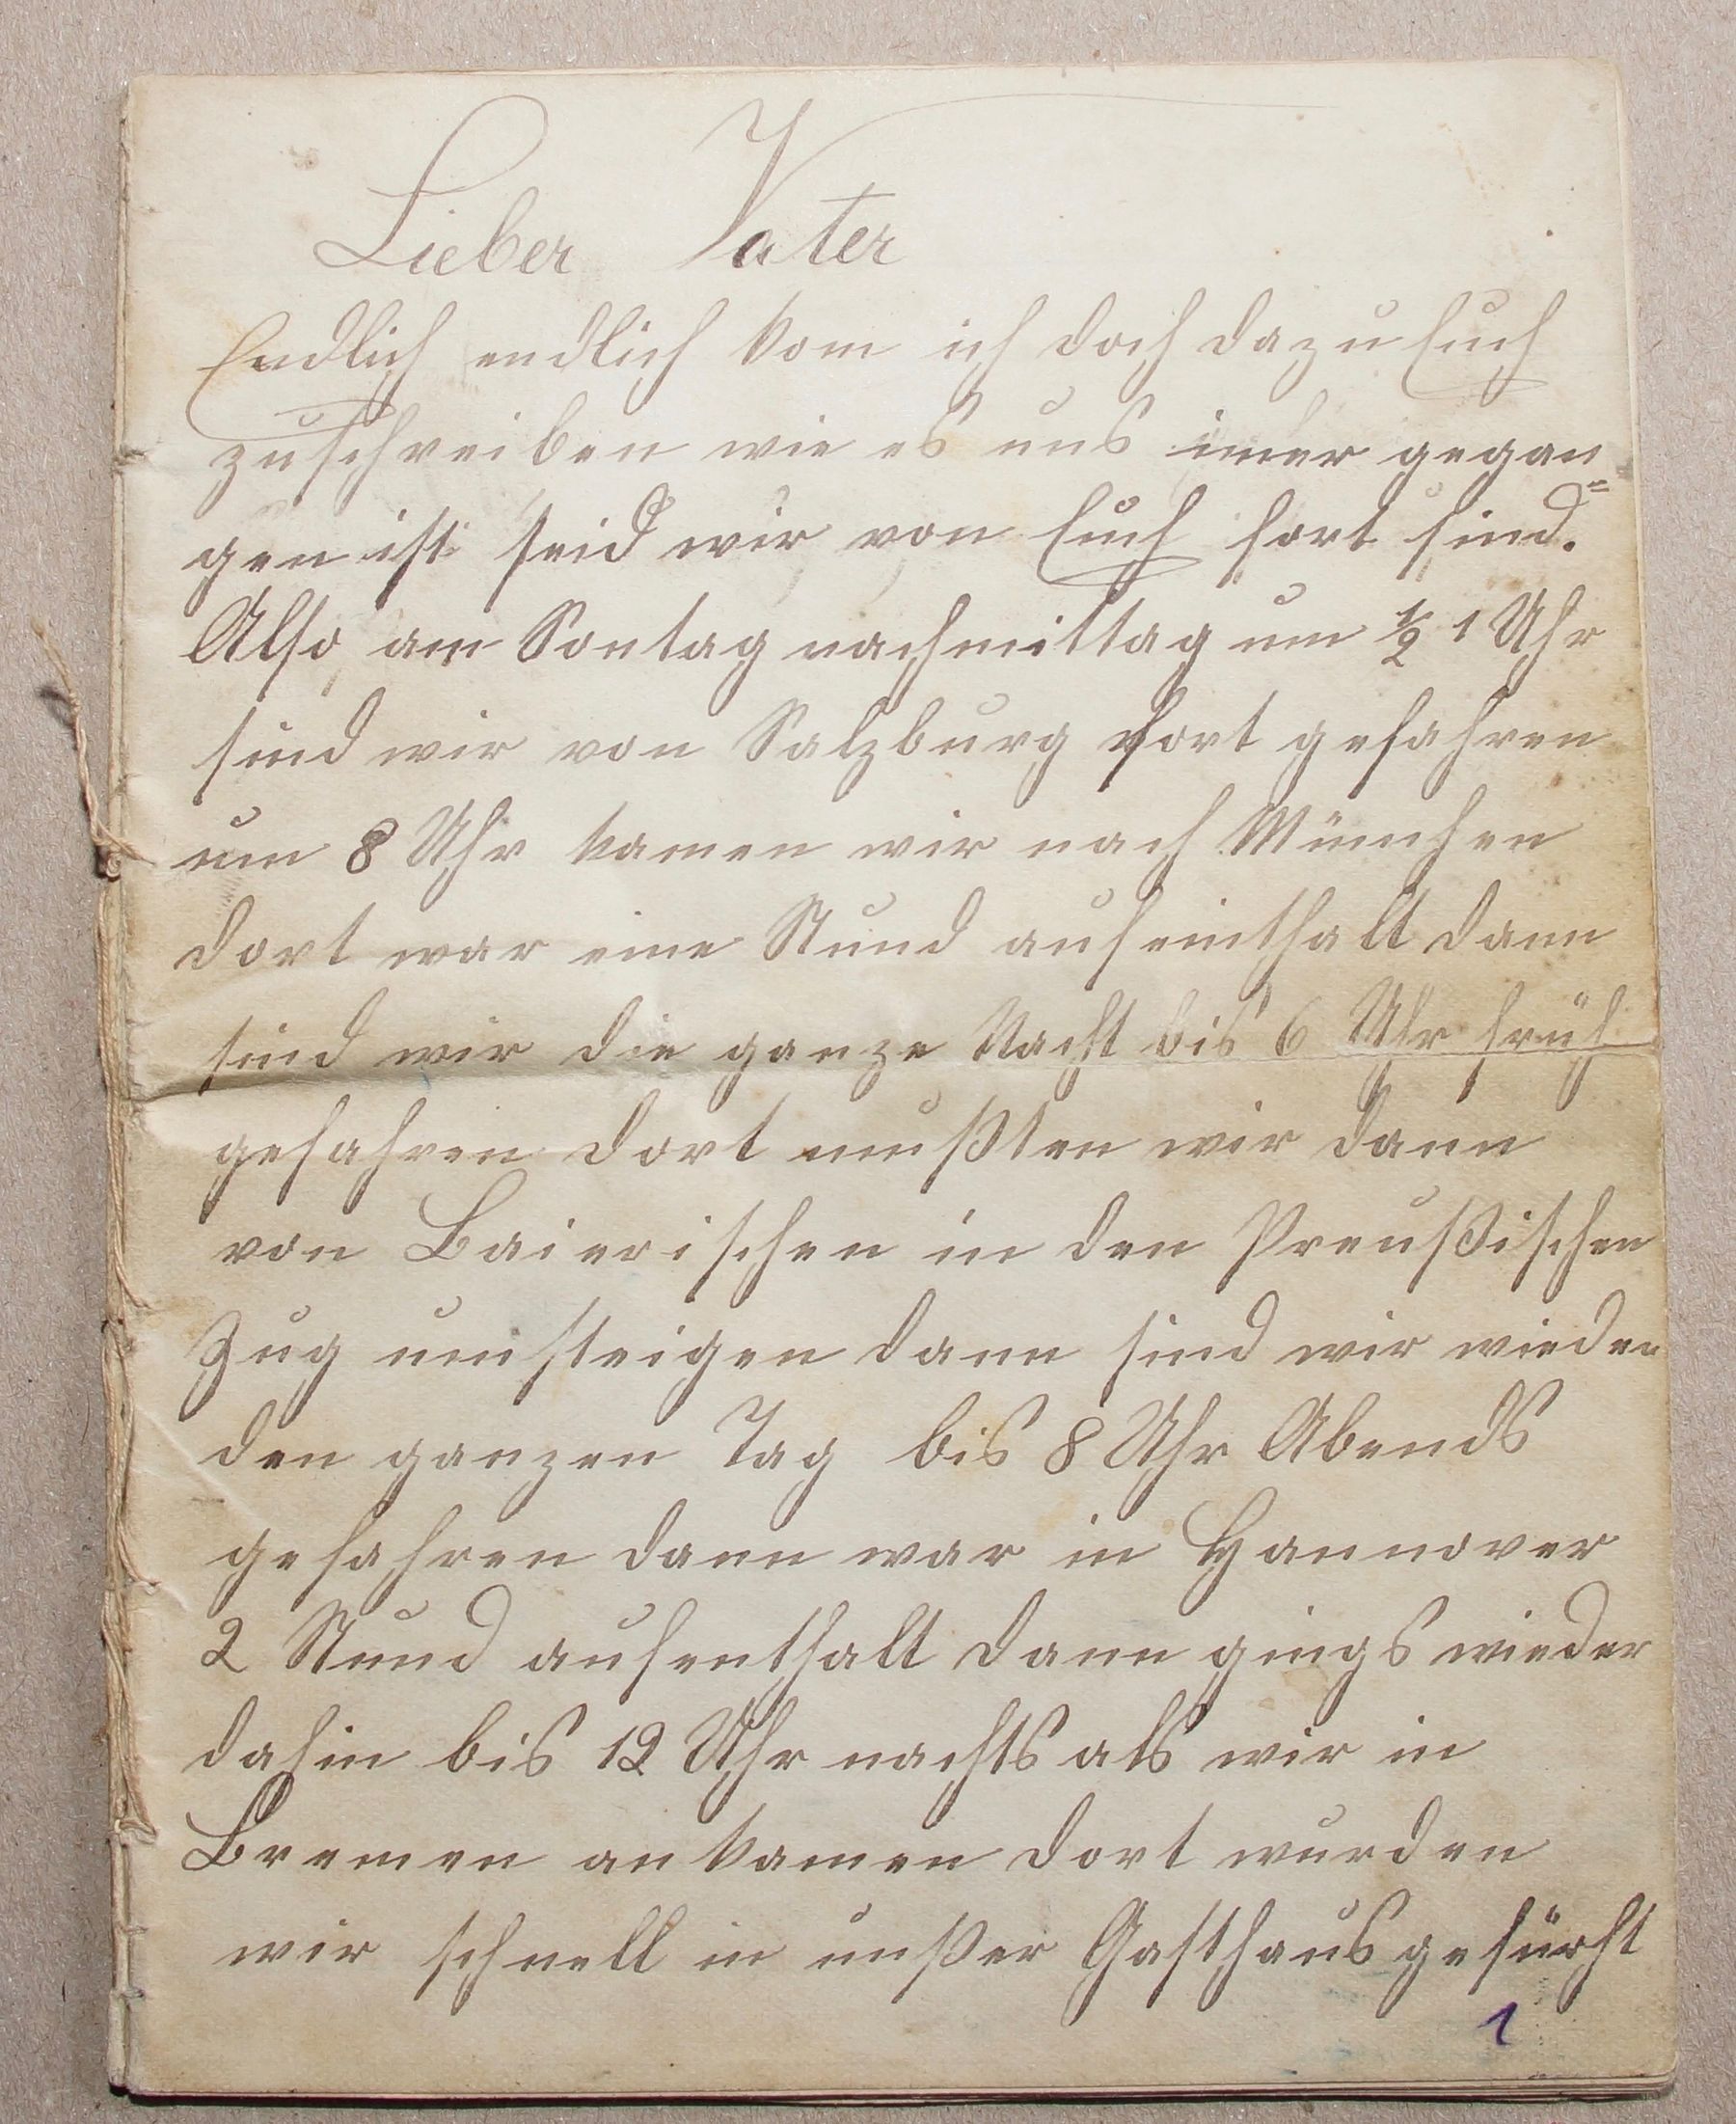 Lieber Vater
Endlich endlich kom ich doch dazu Euch
zuschreiben wie es uns imer gegan=
gen ist seid wir von Euch fort sind.
Also am Sontag nachmittag um ½ 1 Uhr
sind wir von Salzburg fort gefahren
um 8 Uhr kamen wir nach München
dort war eine Stund aufeinthalt dann
sind wir die ganze Nacht bis 6 Uhr früh
gefahren dort mußten wir dann
von Baierischen in den Preußischen
Zug umsteigen dann sind wir wieder
den ganzen Tag bis 8 Uhr Abends
gefahren dann war in Hannover
2 Stund aufenthalt dann gings wieder
dahin bis 12 Uhr nachts als wir in
Bremen an kamen dort wurden
wir schnell in unßer Gasthaus gefürht
1